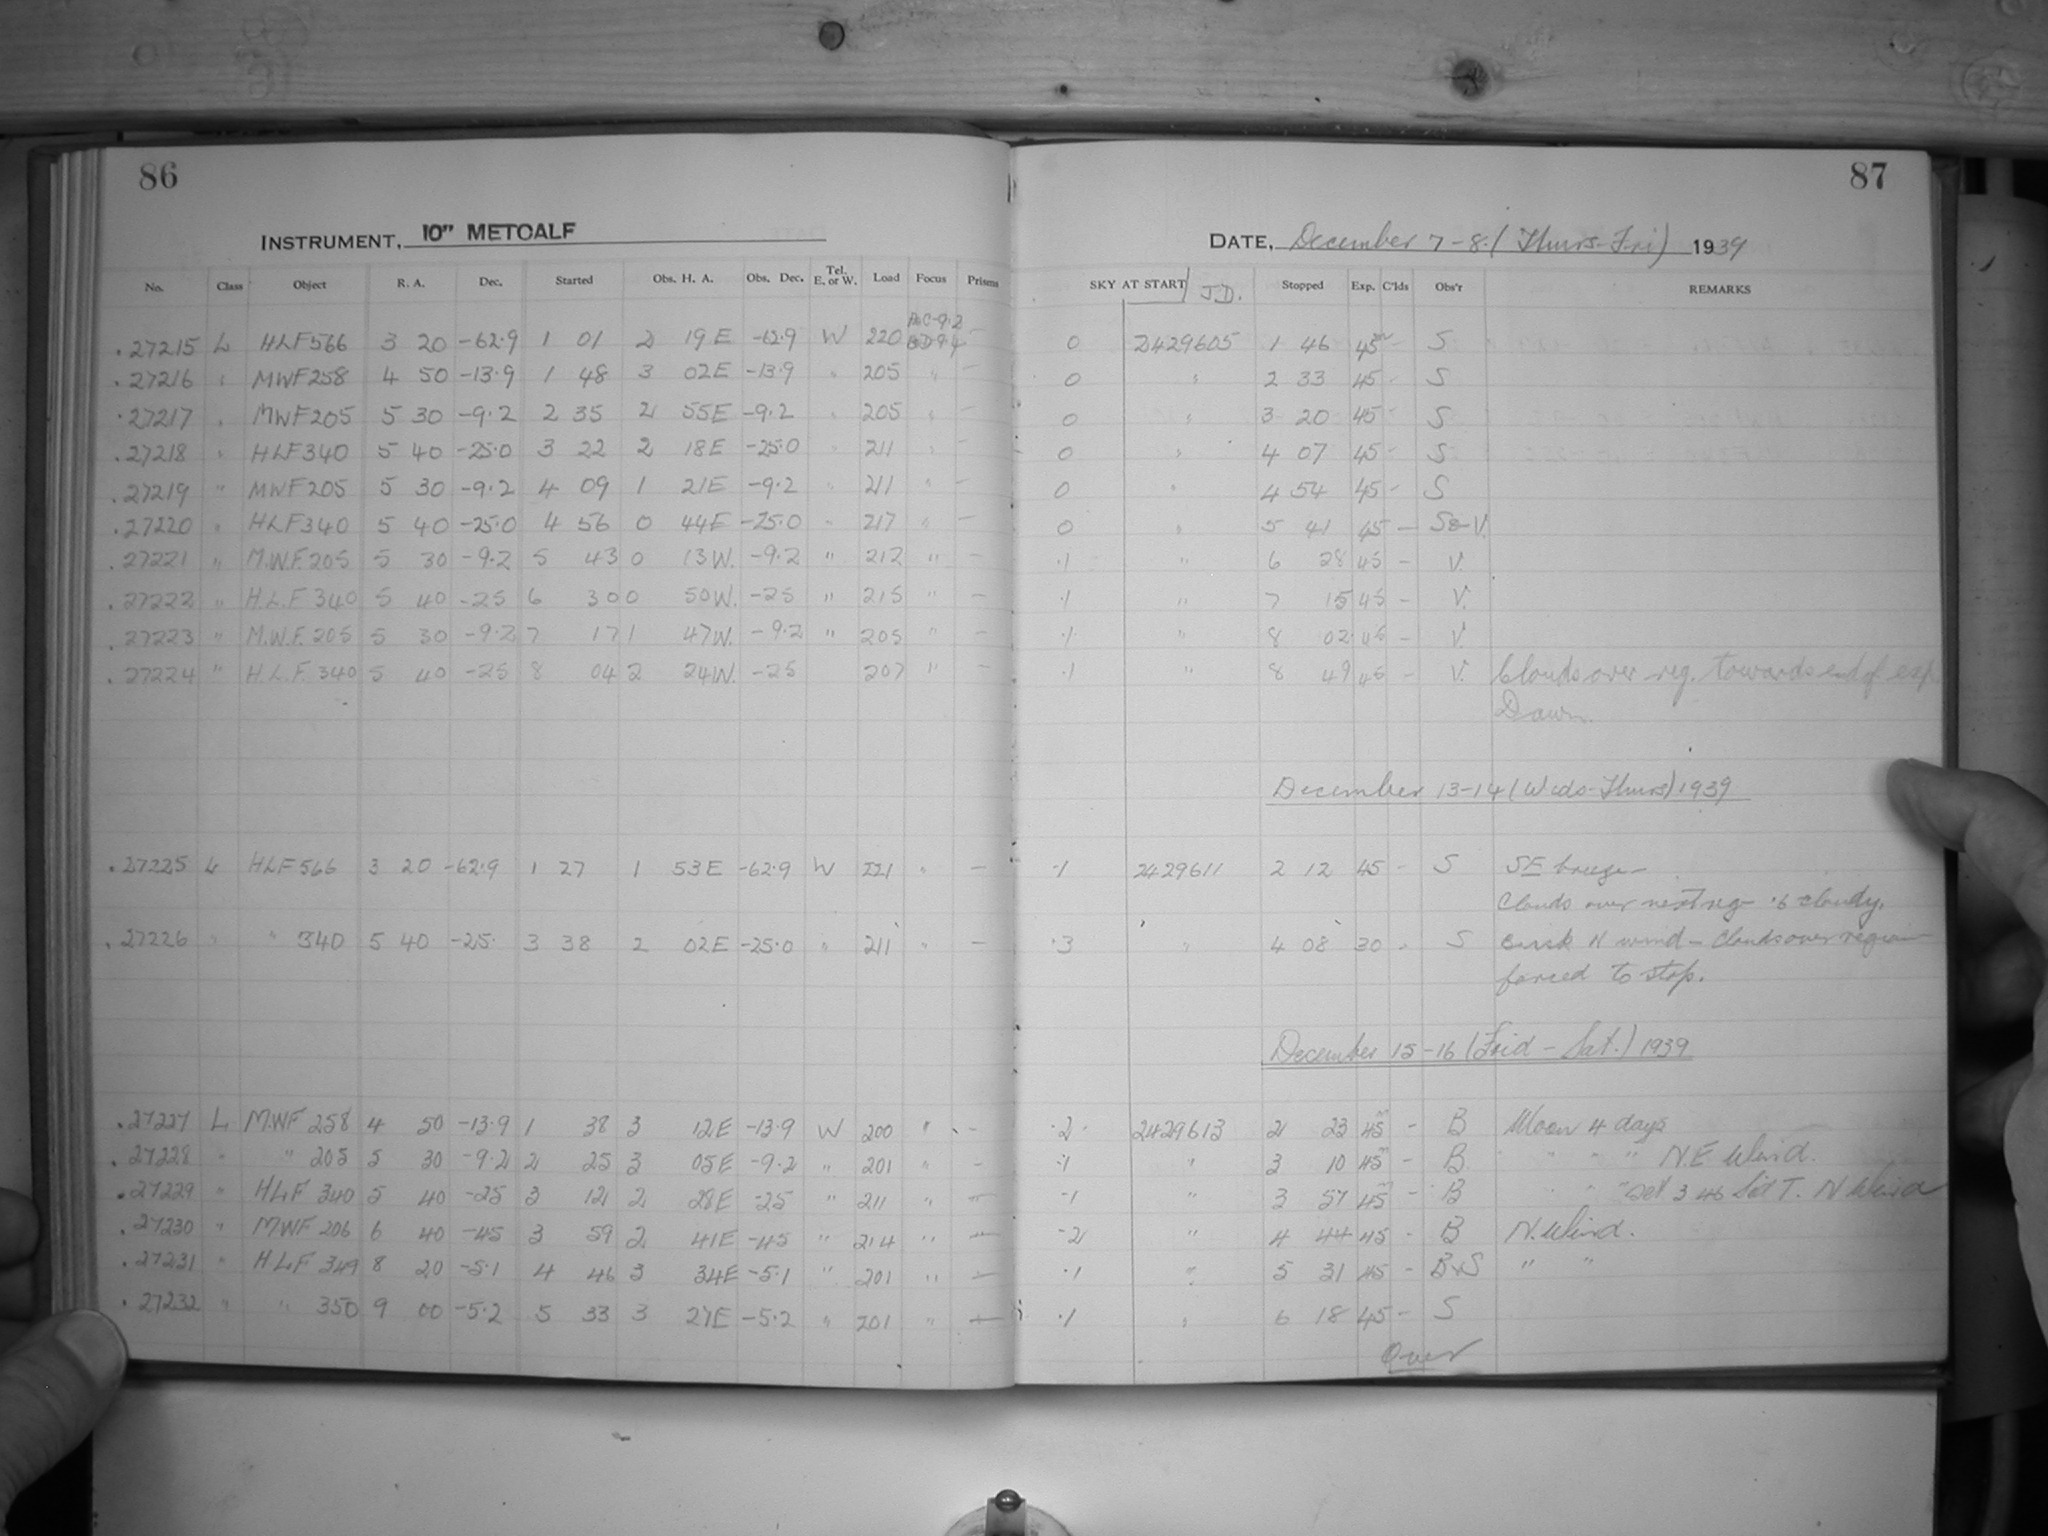 86
INSTRUMENT, 10" METCALF
No. Class Object R. A. Dec. Started Obs. H. A. Obs. Dec. Tel. E. or W. Load Focus Prisms
.27215 L HLF566 3 20 -62.9 1 01 2 19E -62.9 W 220 —
.27216 " MWF258 4 50 -13.9 1 48 3 02E -13.9 " 205 " —
.27217 " MWF205 5 30 -9.2 2 35 2 55E -9.2 " 205 " —
.27218 " HLF340 5 40 -25.0 3 22 2 18E -25.0 " 211 " —
.27219 " MWF205 5 30 -9.2 4 09 1 21E -9.2 " 211 " —
.27220 " HLF340 5 40 -25.0 4 56 0 44E -25.0 " 217 " —
.27221 " M.W.F. 205 5 30 -9.2 5 43 0 13W. -9.2 " 212 " —
.27222 " H.L.F 340 5 40 -25 6 30 0 50W. -25 " 215 " —
.27223 " M.W.F. 205 5 30 -9.2 7 17 1 47W. -9.2 " 205 " —
.27224 " H.L.F. 340 5 40 -25 8 04 2 24W. -25 207 " —
.27225 L HLF566 3 20 -62.9 1 27 1 53E -62.9 W 221 " —
.27226 " " 340 5 40 -25. 3 38 2 02E -25.0 " 211 " —
.27227 L MWF 258 4 50 -13.9 1 38 3 12E -13.9 W 200 " —
.27228 " " 205 5 30 -9.2 2 25 3 05E -9.2 " 201 " —
.27229 " HLF 340 5 40 -25 3 12 2 28E -25 " 211 " —
.27230 " MWF 206 6 40 -45 3 59 2 41E -45 " 214 " —
.27231 " HLF 349 8 20 -5.1 4 46 3 34E -5.1 " 201 " —
.27232 " " 350 9 00 -5.2 5 33 3 27E -5.2 " 201 " —
87
DATE, December 7-8. (Thurs-Fri) 1939
SKY AT START J.D. Stopped Exp. C'lds Obs'r REMARKS
0 2429605 1 46 45 - S
0 " 2 33 45 - S
0 " 3 20 45 - S
0 " 4 07 45 - S
0 " 4 54 45 - S
0 " 5 41 45 — S&V.
.1 " 6 28 45 — V.
.1 " 7 15 45 — V.
.1 " 8 02 45 — V.
.1 " 8 49 45 — V. Clouds over reg. towards end of exp.
Dawn.
December 13-14 (Weds-Thurs) 1939
.1 2429611 2 12 45 - S SE
Clouds over next reg- .6 cloudy.
.3 " 4 08 30 - S N wind - Clouds over region
forced to stop.
December 15-16 (Frid - Sat.) 1939
.2 2429613 2 23 45 - B Moon 4 days
.1 " 3 10 45 - B " " " N.E Wind.
.1 " 3 57 45 - B " " " Set 3 46 Sid T. N Wind
.2 " 4 44 45 - B N. Wind.
.1 " 5 31 45 - B&S " "
.1 " 6 18 45 - S
Over